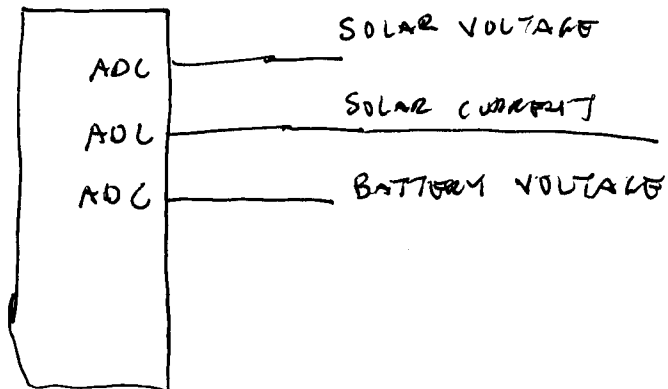 SOLAR VOLTAGE
ADC
SOLAR CURRENT
ADC
ADC
BATTERY VOLTAGE